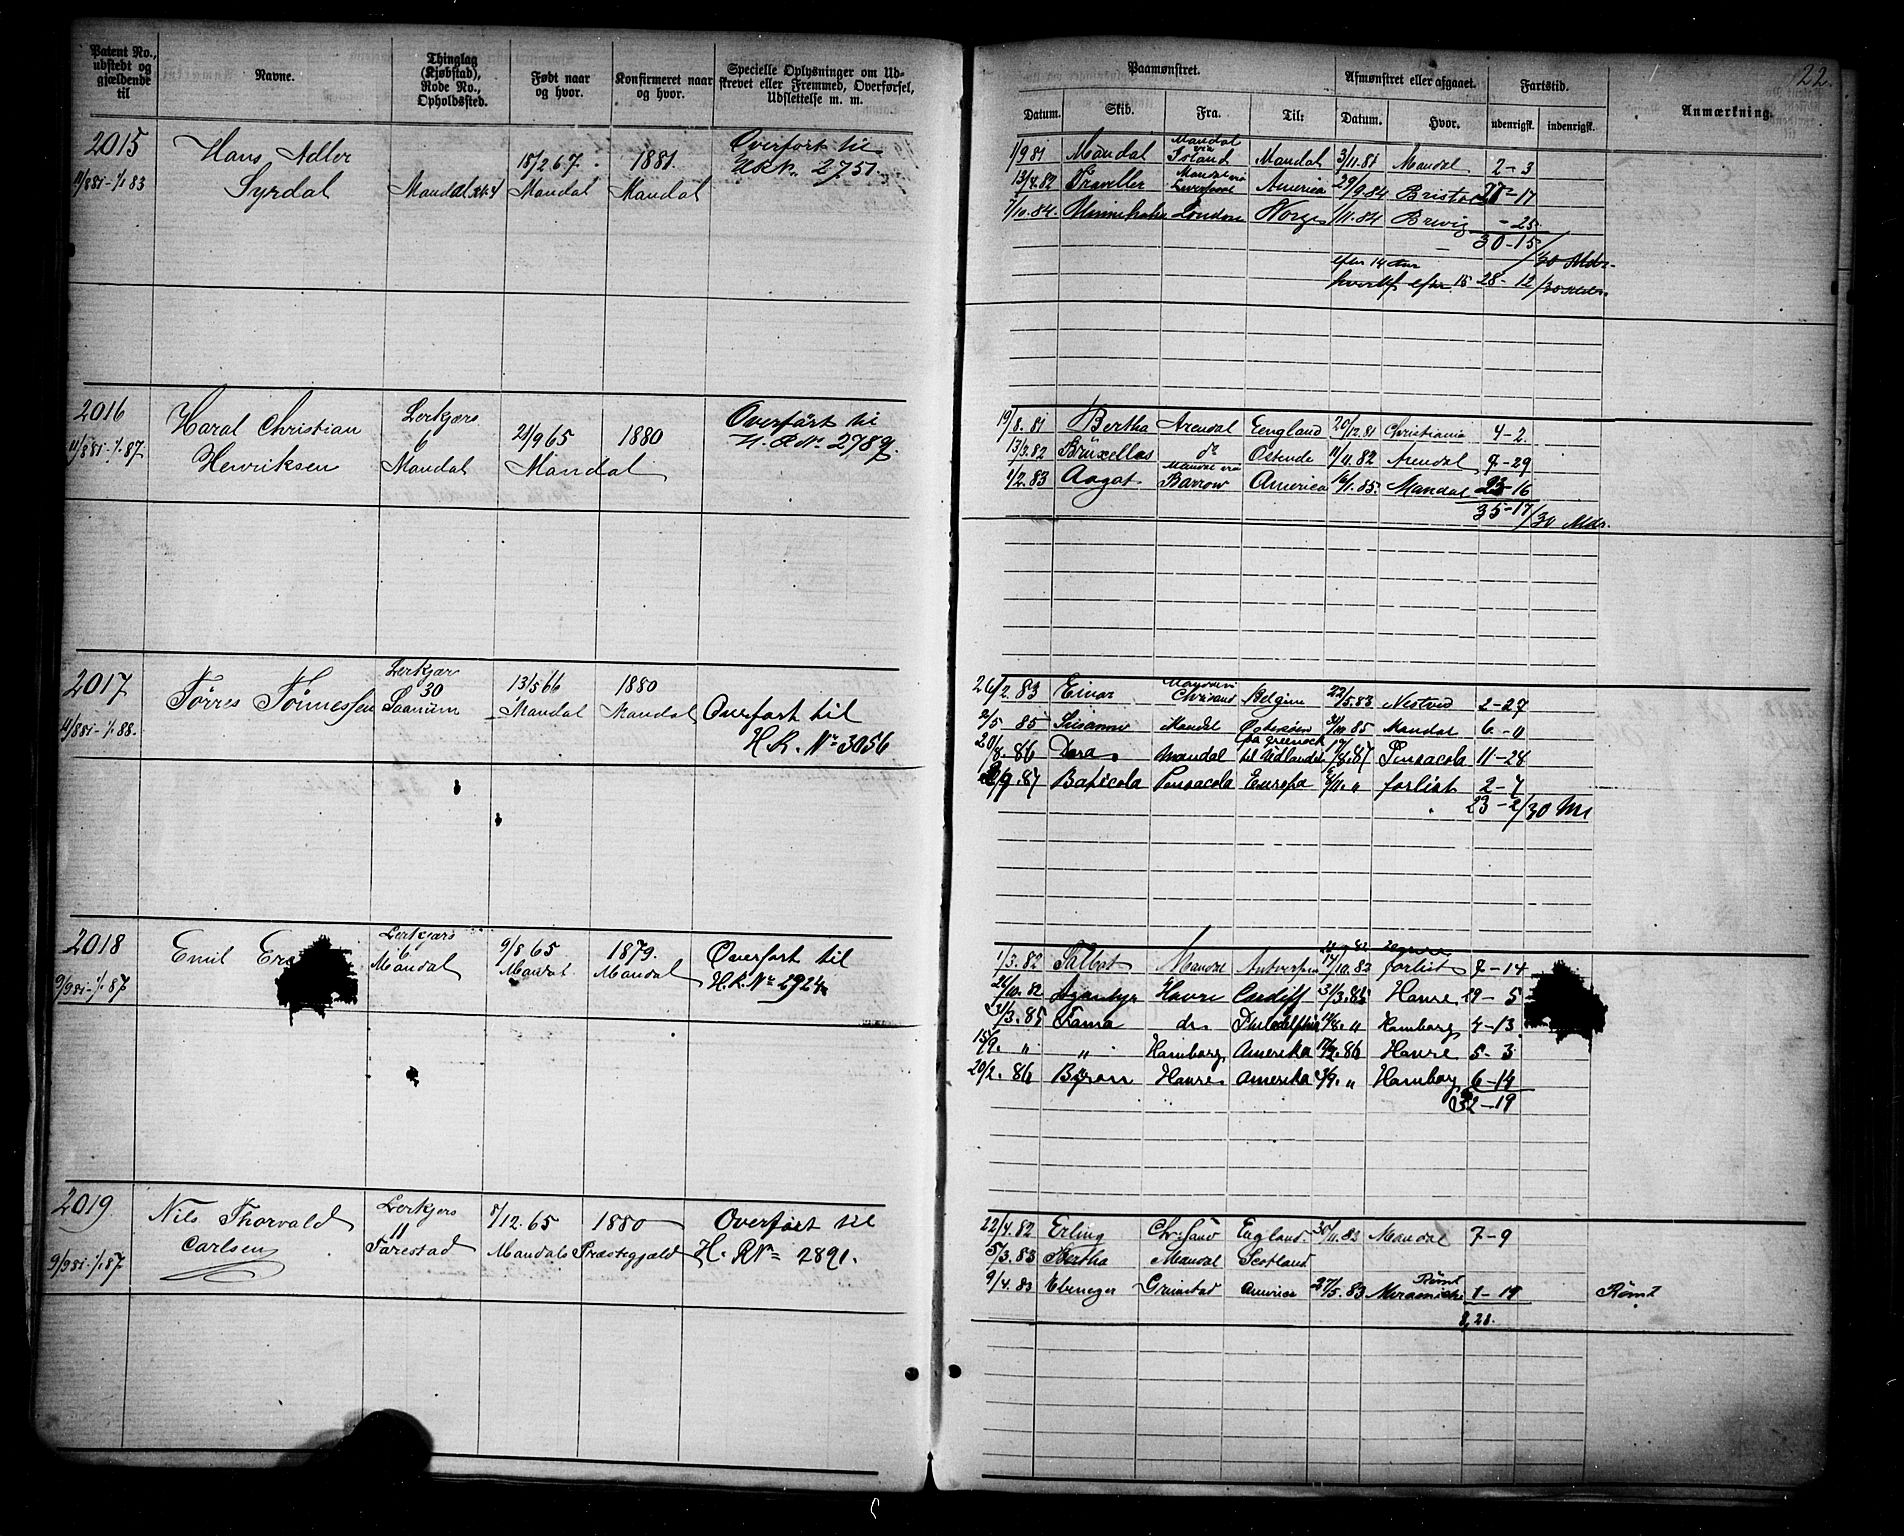 22.
Patent No., udstedt og gjældende til
Navne.
Thinglag (Kjøbstad), Rode No., Opholdssted.
Født naar og hvor.
Konfirmeret naar og hvor.
Specielle Oplysninger om Udskrevet eller Fremmed, Overførsel, Udslettelse m. m.
Paamønstret.
Afmønstret eller afgaaet.
Fartstid.
Anmærkning.
Datum. Skib. Fra. Til: Datum. Hvor. udenrigsk. indenrigsk.
2015 Hans Adler 15/2 67. 1881. Overført til
11/8 81-1/1 83 Syrdal Mandal Mandal Mandal 2751.
1/9 81 Mandal Mandal via Island Mandal 3/11.81 Mandal 2-3
13/4.82 Traveller Mandal via Liverpool America 29/9.84 Bristol 27-17
7/10.84. Minnehaha London Norge 1/11.84 Brevig -25
30-15/30 Mdr.
efter 14 Aar
efter 15 28-12/30 Mdr.
2016 Haral Christian Lerkjærs 6 21/9 65 1880 Overført til
11/8 81-1/1.87 Henriksen Mandal Mandal H. R No. 2789.
19/8.81 Bertha Arendal Eengland 20/12.81 Christiania 4-2
13/3.82 Brüxellas do Ostende 11/4.82 Arendal -29
1/2.83 Aagot Mandal via Barrow America 16/1.85. Mandal 23-16
35-17/30 Mdr.
2017 Tørres Tønnessen Lerkjær 30 13/5 66 1880
11/8 81-1/1.88. Saanum Mandal Mandal Overført til
H. R. No 3056
26/2.83 Einar Chrisand Belgien 22/5.83 Nestved 2-27
2/5 85 Susanne Mandal Østersøen 85 Mandal 6-
20/8.86 Dora. Mandal fra Greenock til Udlandet 17/8.87 Pensacola 11-28
/9.87 Baticola Pensacola Europa 8/11. " forlist 2-7
23-2/30 Md
2018 Emil Lerkjærs 6 9/8 65 1879. Overført til
9/9 81-1/1 87 Mandal Mandal Mandal H.R. No 2924
1/3.82 Talbot Mandal Antwerpen 14/10.82 forlist 7-14
26/10.82 Havre Cardiff 31/3.85 Havre 29-5
31/3.85 Fama do Philadelphia 14/8. " Hamborg 4-13
15/9. " " Hamborg Amerika 17/2.86 Havre 5-3
20/2.86 Byron Havre Amerika 3/9. " Hamborg 6-14
32-19
2019 Nils Thorvald Lerkjers 11 8/12.65 1880 Overført til
9/9 81-1/1 87 Carlsen Tarestad Mandals Præstegjæld H. R No 2891.
22/4.82 Erling Chr.sand England. 30/11.82 Mandal 7-9
5/3.83 Bertha Mandal Scotland
9/4.83 Ebeneger Grimstad America 27/5.83 Rømt Miramichi 1-19 Rømt
8,28.